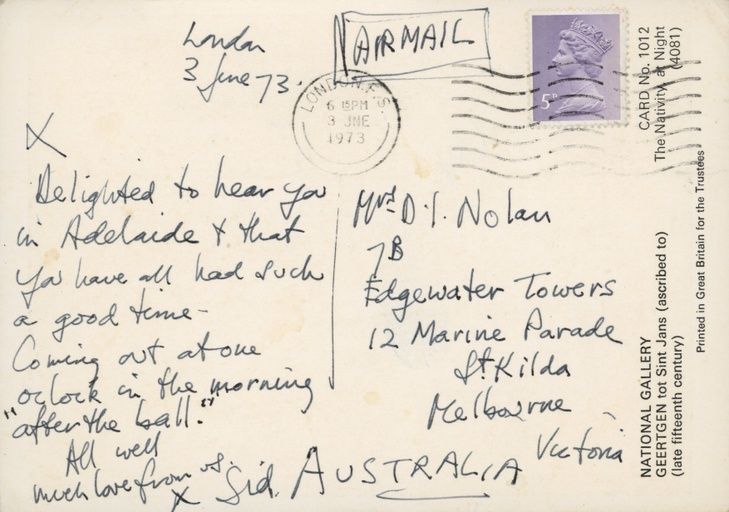 London
3 June 73.
AIRMAIL
LONDON. F.S.
6 15PM
3 JNE
1973
5P
X
Delighted to hear you
in Adelaide & that
you have all had such
a good time -
Coming out at one
oclock in the morning
"after the ball."
All well
much love from us.
X Sid.
Mrs D.I. Nolan
7B
Edgewater Towers
12 Marine Parade
St. Kilda
Melbourne
Victoria
AUSTRALIA
CARD No. 1012
The Nativity, at Night
(4081)
NATIONAL GALLERY
GEERTGEN tot Sint Jans (ascribed to)
(late fifteenth century)
Printed in Great Britain for the Trustees